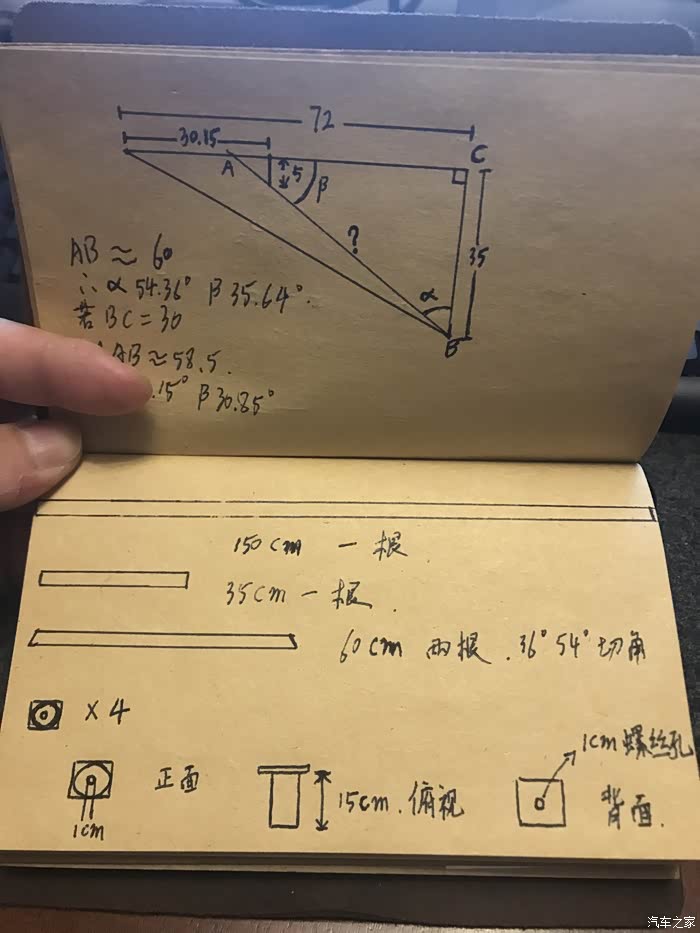 72
30.15
A
5
β
C
?
35
α
B
AB ≈ 60
∴ α 54.36° β 35.64°.
若 BC = 30
AB ≈ 58.5.
.15° β 30.85°
150cm 一根
35cm 一根.
60cm 两根.36° 54° 切角
×4
1cm
正面
15cm.俯视
1cm螺丝孔
背面.
汽车之家